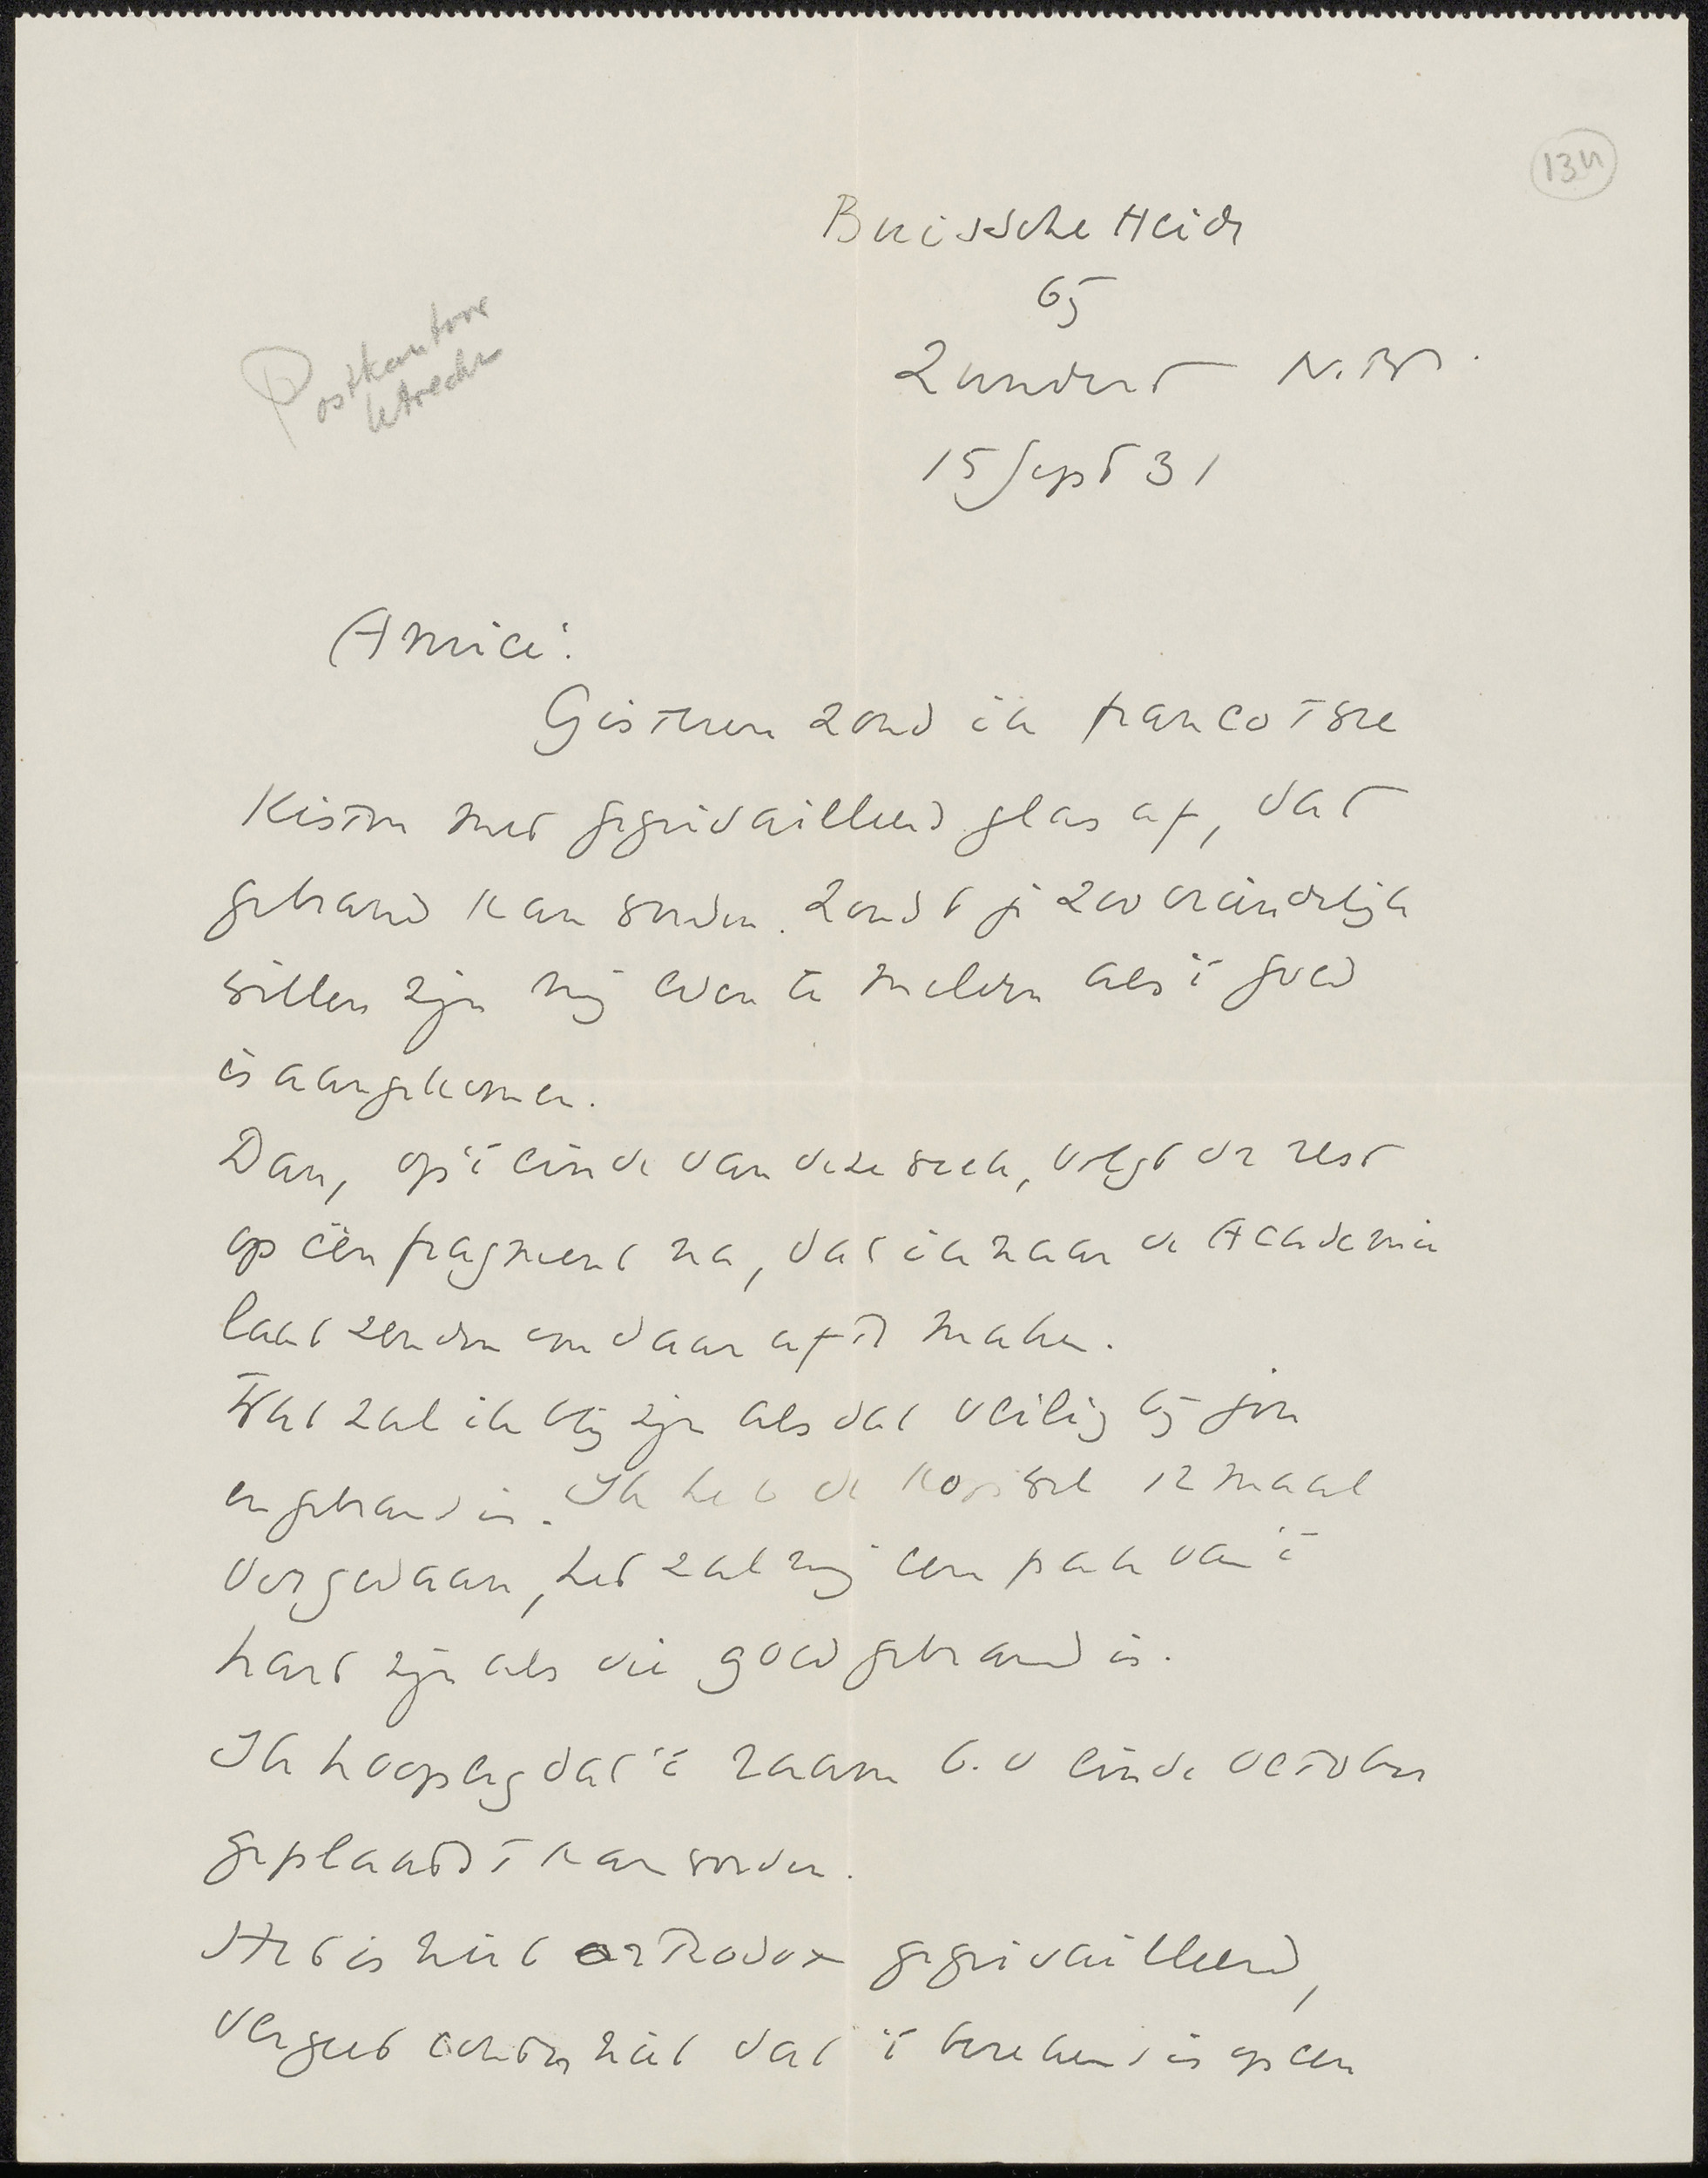 134
Buissche Heide
65
Zundert N.Br.
15 Sept 31
Postkantoor
Utrecht
Amice:
Gisteren zond ik franco twee
kisten met gegrisailleerd glas af, dat
gebrand kan worden. Zoudt je zoo vriendelijk
willen zijn mij even te melden als 't goed
is aangekomen.
Dan, op 't einde van deze week, volgt de rest
op één fragment na, dat ik naar de Academie
laat zenden om daar af te maken.
Wat zal ik blij zijn als dat veilig bij jou
en gebrand is. Ik heb de wissel 12 maal
overgedaan, het zal mij een pak van 't
hart zijn als die goed gebrand is.
Ik hoop erg dat 't raam b.v. einde october
geplaatst kan worden.
Het is niet orthodox gegrisailleerd,
vergeet echter niet dat 't berekend is op een